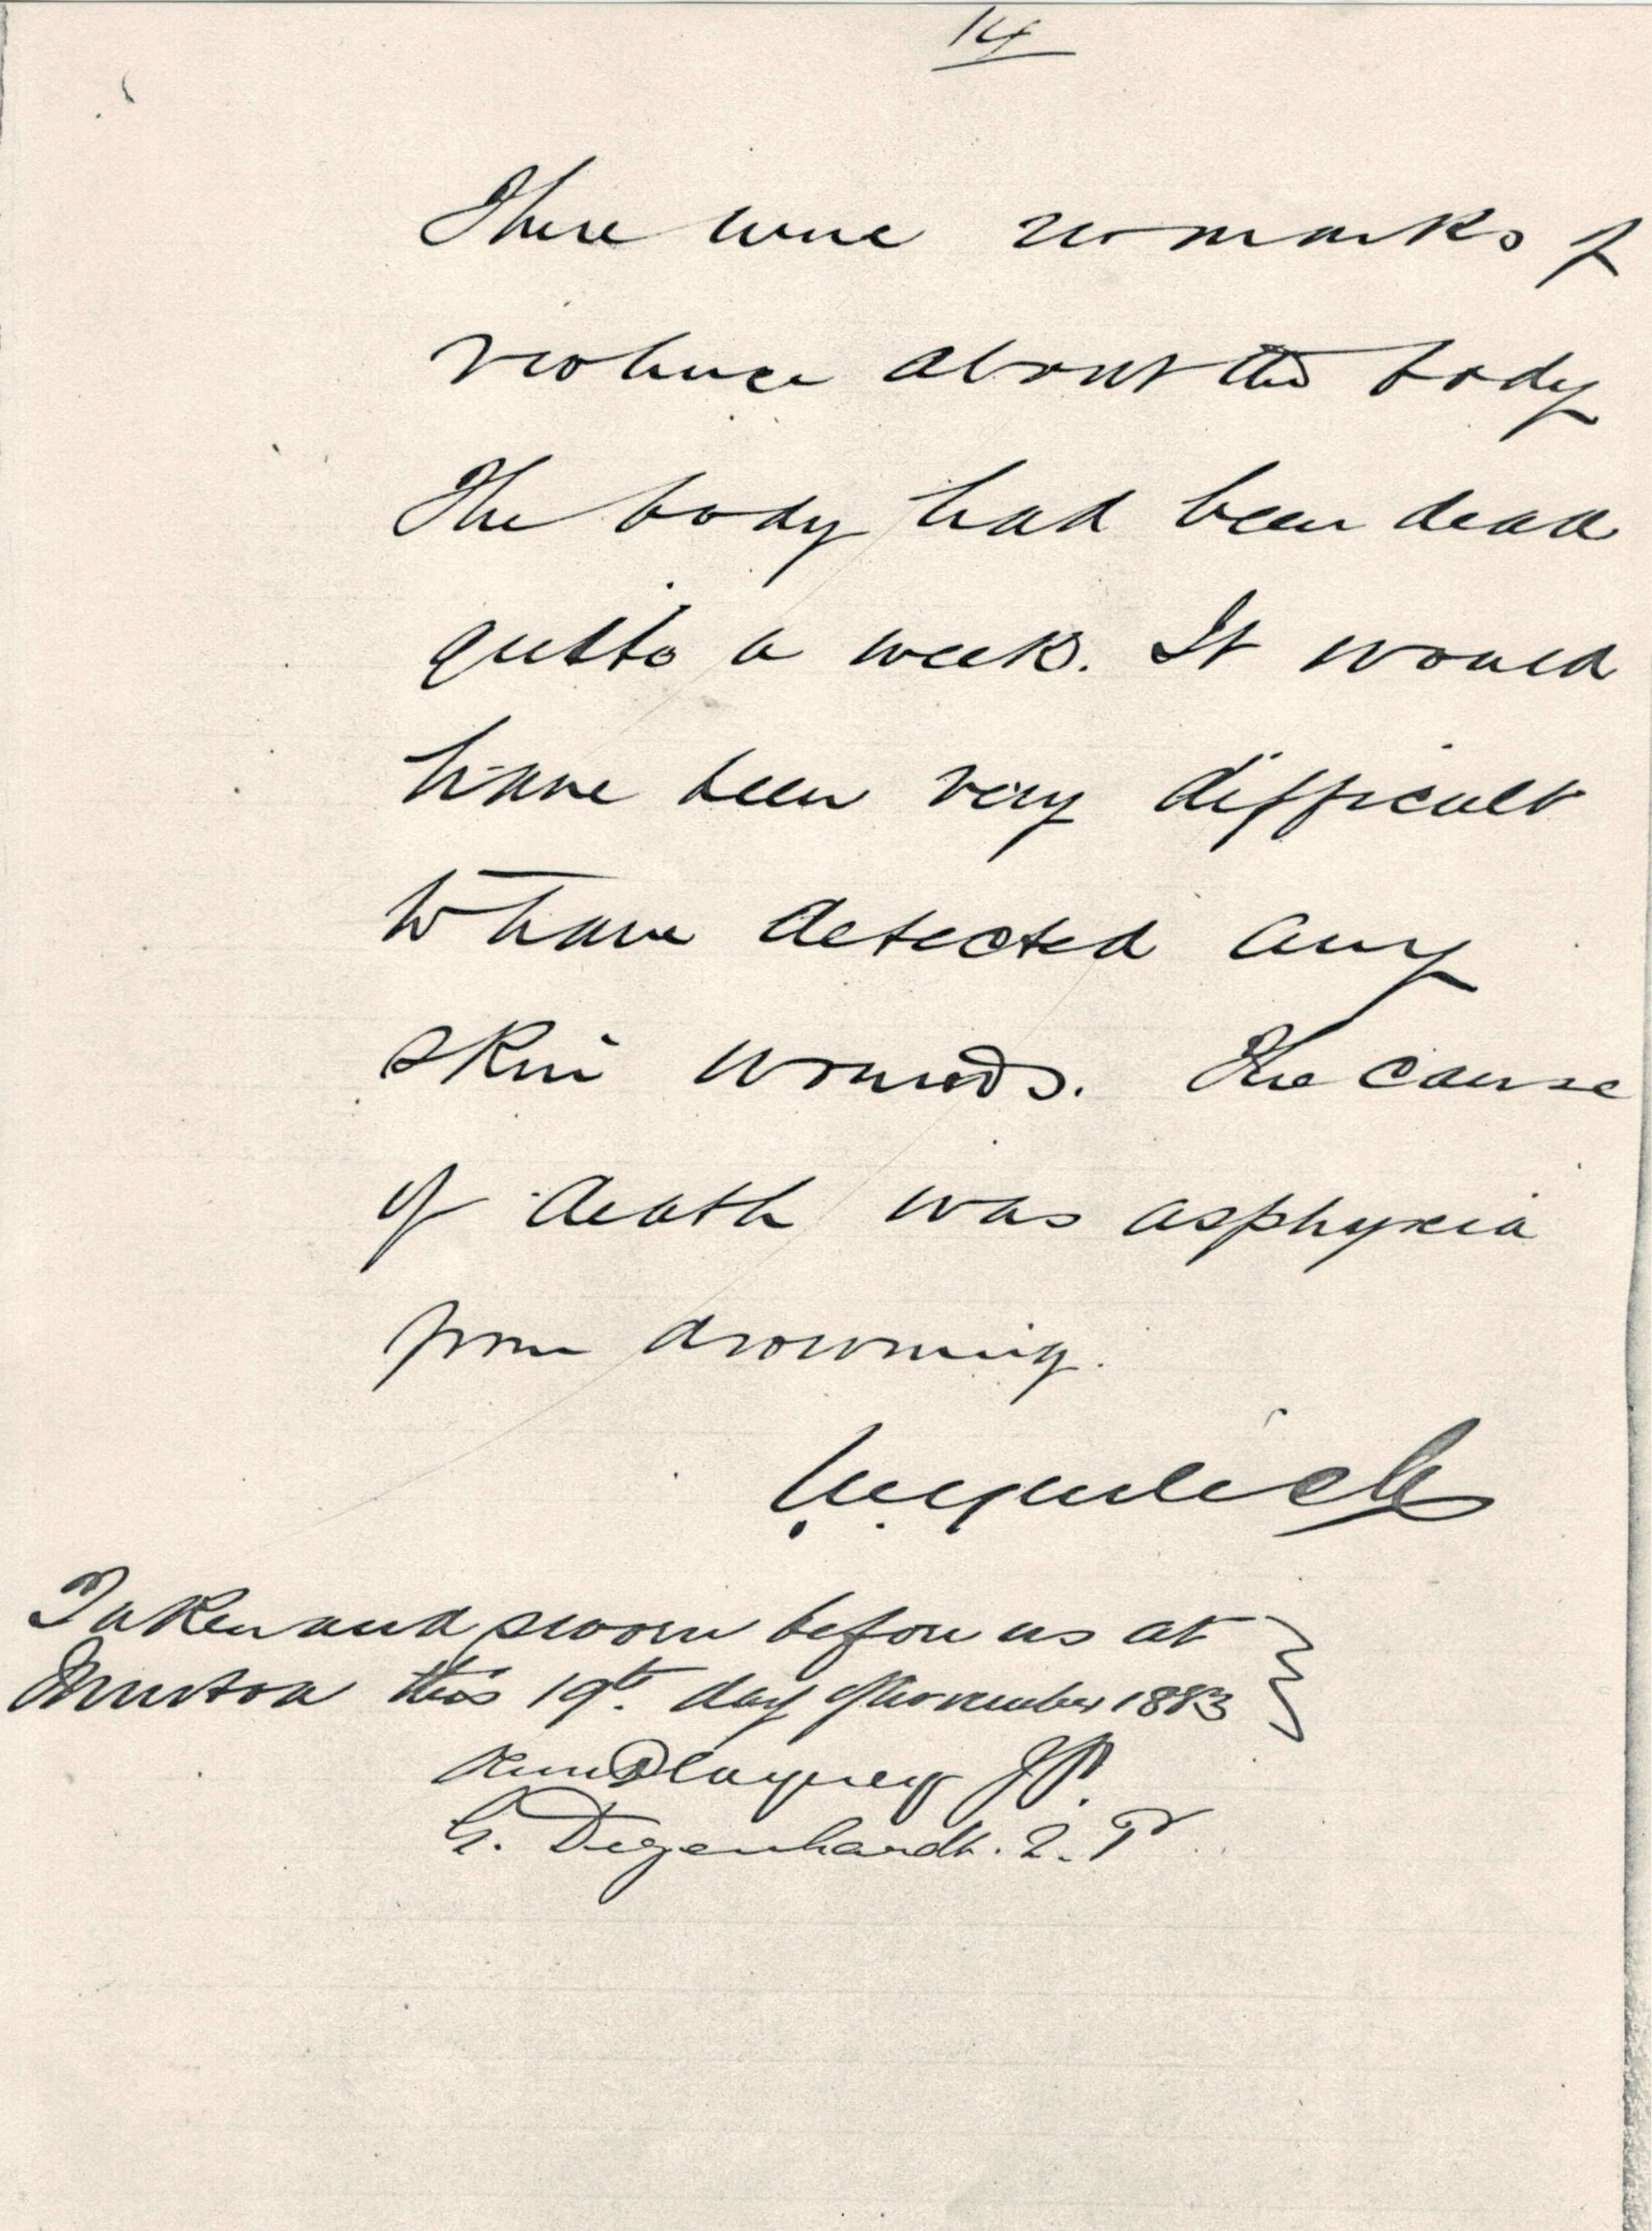 14
There were no marks of
violence about the body
The body had been dead
quite a week. It would
have been very difficult
to have detected any
skin wounds. The cause
of death was asphyxia
from drowning.
Taken and sworn before us at
this 19th. day of November 1883
J.P.
G. Degenhardt. J. P.